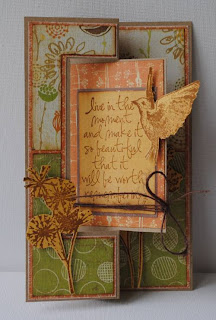 live in the
moment
and make it
so beautiful
that it
will be worth